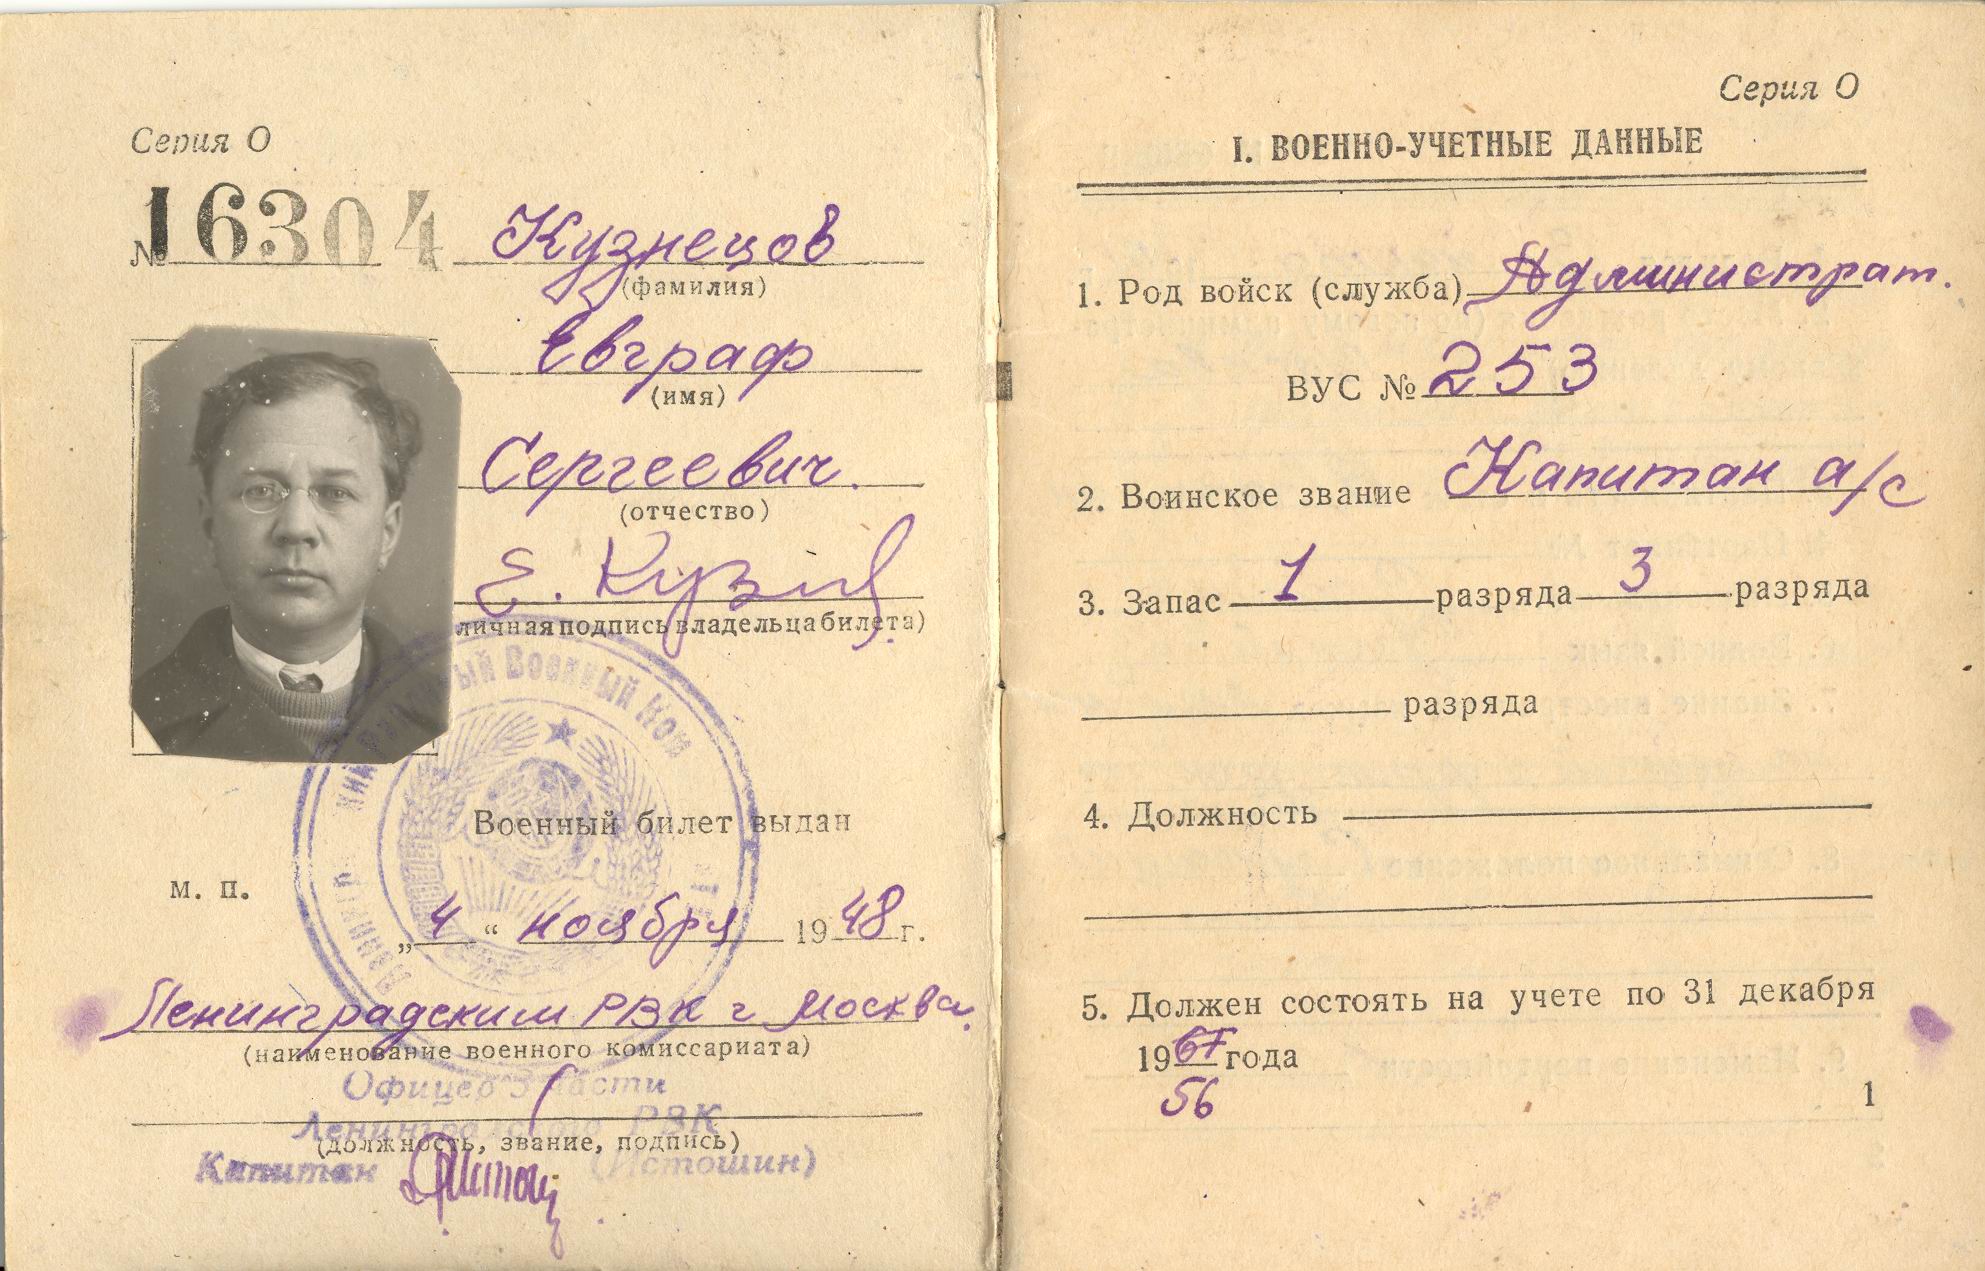 Серия О
№ 16304
Кузнецов
(фамилия)
Евграф
(имя)
Сергеевич.
(отчество)
Е. Кузнец
личная подпись владельца билета)
Военный билет выдан
м. п.
„4“ ноября 1948 г.
Ленинградским РВК г Москва.
(наименование военного комиссариата)
Офицер 3 части
Ленинградского РВК
(должность, звание, подпись)
Капитан (Истошин)
Военный Ком
Серия О
I. ВОЕННО-УЧЕТНЫЕ ДАННЫЕ
1. Род войск (служба) Администрат.
ВУС № 253
2. Воинское звание Капитан а/с
3. Запас 1 разряда 3 разряда
разряда
4. Должность
5. Должен состоять на учете по 31 декабря
1967 года
56
1